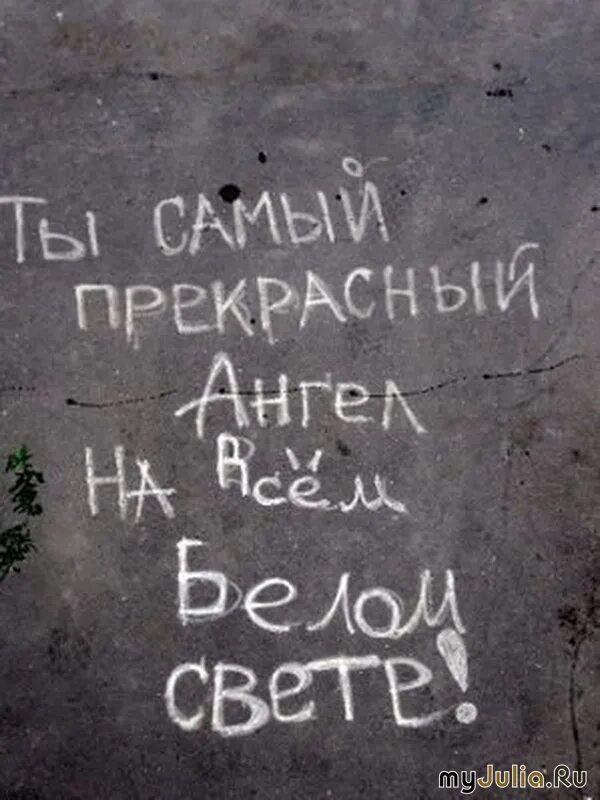 Ты САМЫЙ
ПРЕКРАСНЫЙ
Ангел
НА Всём
Белом
СВЕТЕ!
myJulia.Ru